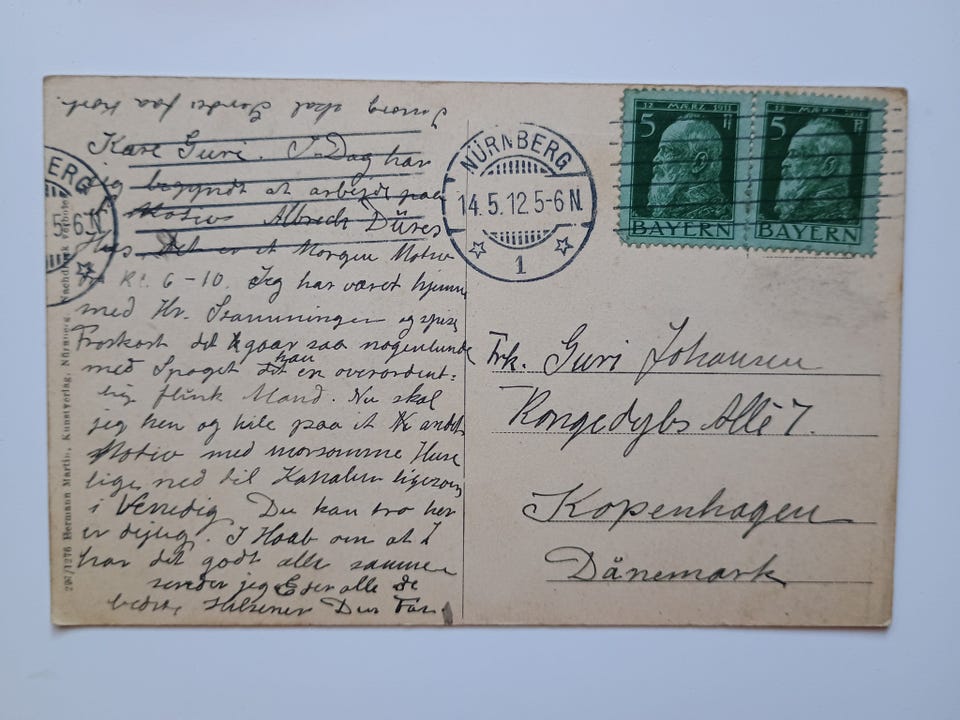 Imorg skal Gerda faa kort.
Kære Guri. I Dag har
jeg begyndt at arbejde paa
Motivo Albrech Dürer
Hus Det er et Morgen Motiv
Kl. 6-10. Jeg har været hjemme
med Hr. og spise
Frokost det gaar saa nogenlunde
med Sproget han er en overordent-
lig flink Mand. Nu skal
jeg hen og kike paa et andet
Motiv med morsomme Huse
lige ned til Kanalen ligesom
i Venedig. Du kan tro her
er dejligt. I Haab om at I
har det godt alle sammen
sender jeg Eder alle de
bedste Hilsener Din Far
297/1276 Hermann Martin, Kunstverlag, Nürnberg. Nachdruck verboten
ERG
5-6 N
NÜRNBERG
14.5.12.5-6 N.
1
12 MÆRZ 1911
5 Pf
BAYERN
12 MÆRZ 1911
5 Pf
BAYERN
Frk. Guri Johansen
Kongedybs Allé 7.
Kopenhagen
Dänemark